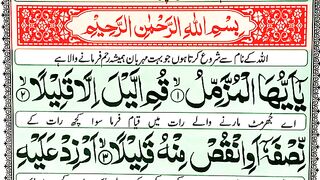 بِسْمِ اللهِ الرَّحْمٰنِ الرَّحِيْمِ
اللہ کے نام سے شروع کرتا ہوں جو بہت مہربان ہمیشہ رحم فرمانے والا ہے
يٰۤاَيُّهَا الْمُزَّمِّلُ ۙ﴿۱﴾ قُمِ الَّيْلَ اِلَّا قَلِيْلًا ۙ﴿۲﴾
اے جھرمٹ مارنے والے رات میں قیام فرما سوا کچھ رات کے
نِّصْفَهٗۤ اَوِ انْقُصْ مِنْهُ قَلِيْلًا ۙ﴿۳﴾ اَوْ زِدْ عَلَيْهِ